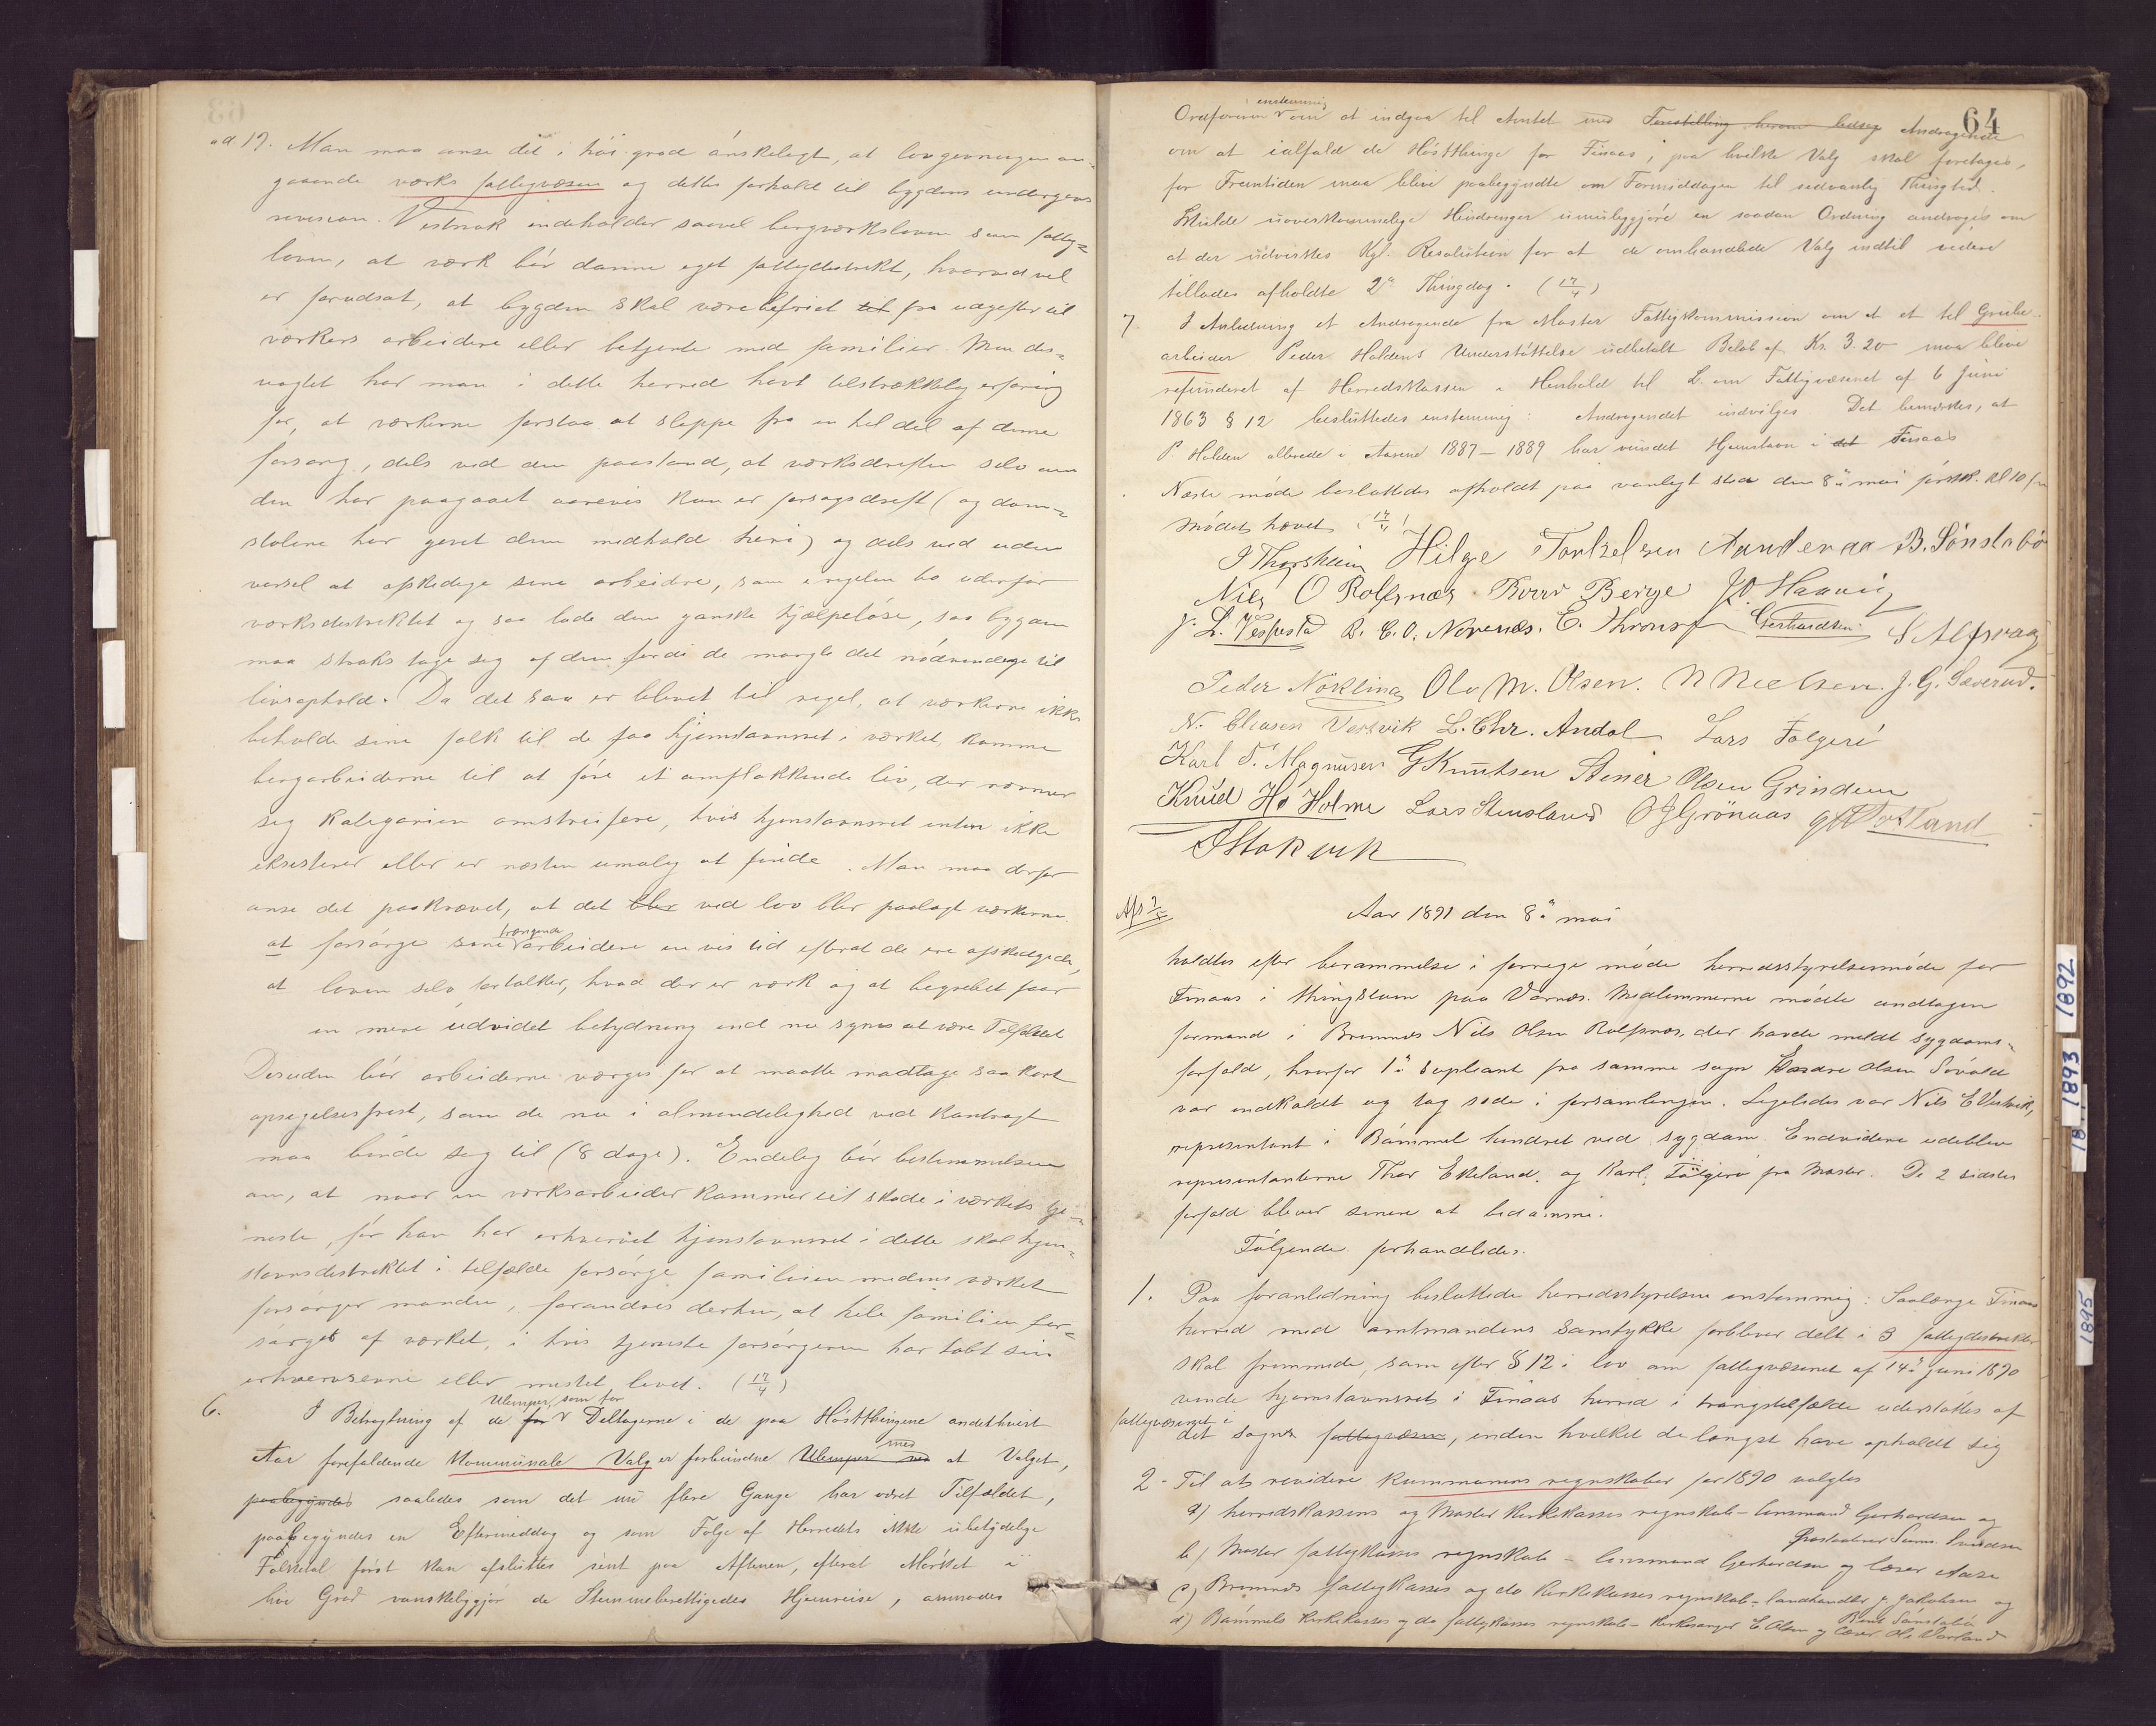 ad 17. Man maa anse det i höi grad önskeligt, at lovgivningen an-
gaaende værks fattigvæsen og dettes forhold til bygdens undergives
revision. Vistnok indeholder saavel bergværksloven som fattig-
loven, at værk bör danne eget fattigdistrikt, hvorved vel
er forudsat, at bygden skal være befriet til fra udgifter til
værkers arbeidere eller betjente med familier. Men des-
uagtet har man i dette herred havt tilstrækkelig erfaring
for, at værkerne forstaa at slippe fra en hel del af denne
forsorg, dels ved den paastand, at værksdriften selv om
den har paagaaet aarevis kun er forsøgsdrift (og dom-
stolene har givet dem medhold heri) og dels ved uden
varsel at afskedige sine arbeidere, som i regelen bo udenfor
værksdistriktet og saa lade dem ganske hjælpelöse, saa bygden
maa straks tage sig af dem fordi de mangle det nödvendige til
livsophold. Da det saa er blevet til regel, at værkerne ikke
beholde sine folk til de faa hjemstavnsret i værket, komme
bergarbeiderne til at före et omflakkende liv, der nærmer
sig kategorien omstreifere, hvis hjemstavnsret enten ikke
eksisterer eller er næsten umulig at finde. Man maa derfor
anse det paakrævet, at det blev ved lov blir paalagt værkerne
at forsörge sine trængende arbeidere en vis tid efterat de ere afskedigede,
at loven selv fortolker, hvad der er værk og at begrebet faar
en mere udvidet betydning end nu synes at være Tilfældet
Desuden bör arbeiderne værges for at maatte modtage saa kort
opsigelsesfrist, som de nu i almindelighed ved kontrakt
maa binde sig til (8 dage). Endelig bör bestemmelsen
om, at naar en værksarbeider kommer til skade i værkets tje-
neste, för han har erhvervet hjemstavnsret i dette skal hjem-
stavnsdistriktet i tilfælde forsörge familien medens værket
forsörger manden, forandres derhen, at hele familien for-
sörges af værket, i hvis tjeneste forsörgeren har tabt sin
erhvervsevne eller mistet livet. (17/4)
6. I Betragtning af de for Ulemper, som for Deltagerne i de paa Höstthingene andethvert
Aar forefaldende Kommunale Valg er forbundne Ulemper ved med at Valget,
paabegyndes saaledes som det nu flere Gange har været Tilfældet,
paabegyndes en Eftermiddag og som Fölge af Herredets ikke ubetydelige
Folketal först kan afsluttes sent paa Aftenen, efterat Mörket i
höi Grad vanskeliggjör de Stemmeberettigedes Hjemreise, anmodes
64
Ordföreren enstemmig om at indgaa til Amtet med Forestilling herom ledsag Andragende
om at ialfald de Höstthinge for Finaas, paa hvilke Valg skal foretages,
for Fremtiden maa blive paabegyndte om Formiddagen til sedvanlig Thingtid.
Skulde uoverkommelige Hindringer umuliggjöre en saadan Ordning androges om
at der udvirkes Kgl. Resolution for at de omhandlede Valg indtil videre
tillades afholdte 2den Thingdag. (17/4)
7 I Anledning et Andragende fra Moster Fattigkommission om at et til Grube-
arbeider Peder Haldens Understöttelse udbetalt Belöb af Kr. 3.20 maa blive
refunderet af Herredskassen i Henhold til L. om Fattigvæsenet af 6 Juni
1863 § 12 besluttedes enstemmig: Andragendet indvilges. Det bemærkes, at
P. Halden allerede i Aarene 1887–1889 har vundet Hjemstavn i det Finaas
Næste möde besluttedes afholdt paa vanligt sted den 8de mai förstk. kl 10 fm
Mödet hævet (17/4)
Hilge Torkelsen Aandenaa B. Sönstabö
Niels O Rolfsnæs Berge J.O. Haavig
J. L. Vespestad E.O. Norenæs. Gerhardsen S Alfsvaag
Peder Nökling Ole M. Olsen. N Nielsen. J. G. Sæverud.
N. Eliasen Vestvik L. Chr. Andal Lars Folgerö
Karl T. Magnusen G Knutsen Stener Olsen Grindem
Knud H Holme Lars Stensland O J Grönaas
J Stokvik
Aar 1891 den 8de mai
holdtes efter berammelse i forrige möde herredsstyrelsesmöde for
Finaas i thingstuen paa Varnes. Medlemmerne mödte undtagen
formand i Bremnes Nils Olsen Rolfsnæs, der havde meldt sygdoms-
forfald, hvorfor 1ste supleant fra samme sogn Olsen Sövold
var indkaldt og tog sæde i forsamlingen. Ligeledes var Nils E Vestvik,
representant i Bömmel hindret ved sygdom. Endvidere udeblev
representanterne Thor Ekeland og Karl Folgerö fra Moster. De 2 sidstes
forfald bliver senere at bedömme.
Fölgende forhandledes.
1. Paa foranledning besluttede herredsstyrelsen enstemmig: Saalænge Finaas
herred med amtmandens samtykke forbliver delt i 3 fattigdistrikter
skal fremmede, som efter § 12 i lov om fattigvæsenet af 14de juni 1890
vinde hjemstavnsret i Finaas herred i trangstilfælde understöttes af
fattigvæsenet i det sogns fattigvæsen, inden hvilket de længst have opholdt sig
2 - Til at revidere kommunens regnskaber for 1890 valgtes
a) herredskassens og Moster kirkekasses regnskab - lensmand Gerhardsen og
b) Moster fattigkasses regnskab - lensmand Gerhardsen og lærer Aase
c) Bremnes fattigkasses og do kirkekasses regnskab - landhandler J. Jakobsen og
Bent Sönstabö
d) Bömmels kirkekasses og do fattigkasses regnskab - kirkesanger E Olsen og lærer
1892
18 1893
1895